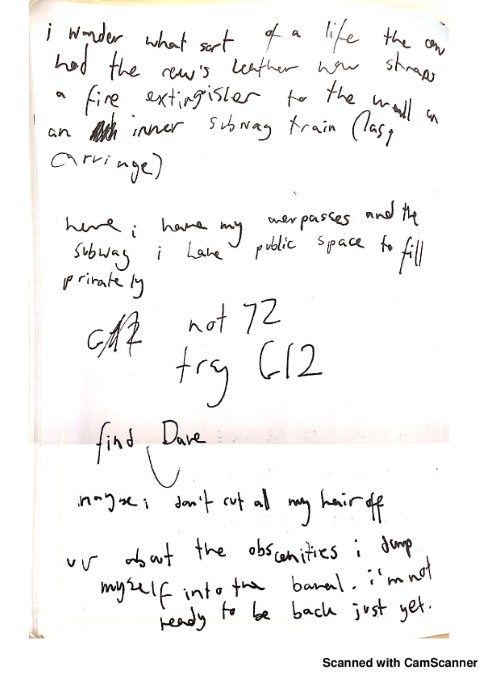 i wonder what sort of a life the cow
had the cow's leather now straps
a fire extingisler to the wall on
an inner subway train (last
carringe)
here i have my overpasses and the
subway i have public space to fill
privately
not 72
try C12
find Dave
maybe i don't cut all my hair off
about the obscenities i dump
myself into the banal. i'm not
ready to be back just yet.
Scanned with CamScanner